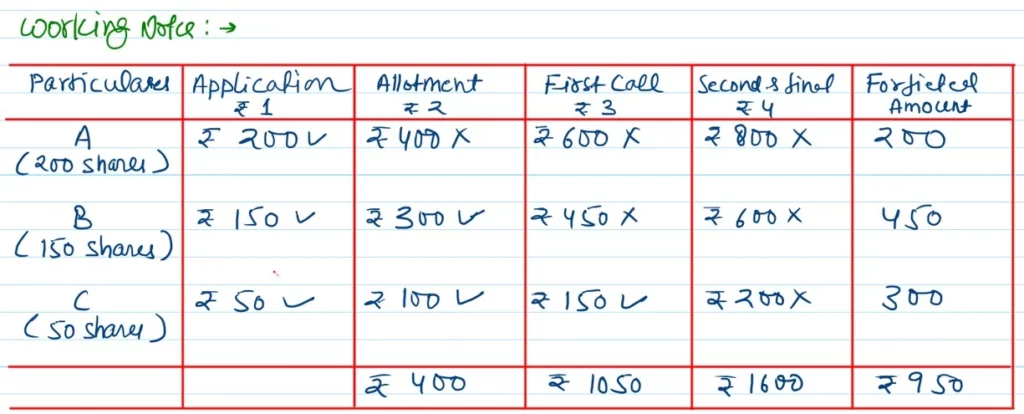 Working Note: →
Particulars Application Allotment First Call Second & final Forfieted
₹ 1 ₹ 2 ₹ 3 ₹ 4 Amount
A ₹ 200 ✓ ₹ 400 X ₹ 600 X ₹ 800 X 200
(200 shares)
B ₹ 150 ✓ ₹ 300 ✓ ₹ 450 X ₹ 600 X 450
(150 shares)
C ₹ 50 ✓ ₹ 100 ✓ ₹ 150 ✓ ₹ 200 X 300
(50 shares)
₹ 400 ₹ 1050 ₹ 1600 ₹ 950